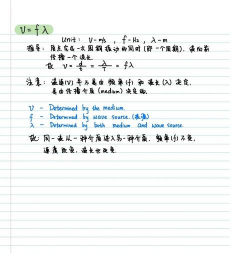 V = fλ
Unit: V - m/s , f - Hz , λ - m
推导: 质点完成一次周期振动的同时 (即一个周期), 波向前
传播一个波长
故 V = = λ/T = fλ
注意: 波速(V) 并不是由 频率(f) 和 波长(λ) 决定,
是由传播介质 (medium) 决定的.
V - Determined by the medium.
f - Determined by wave source. (波源)
λ - Determined by both medium and wave source.
故: 同一波从一种介质进入另一种介质, 频率(f)不变,
速度改变, 波长也改变.